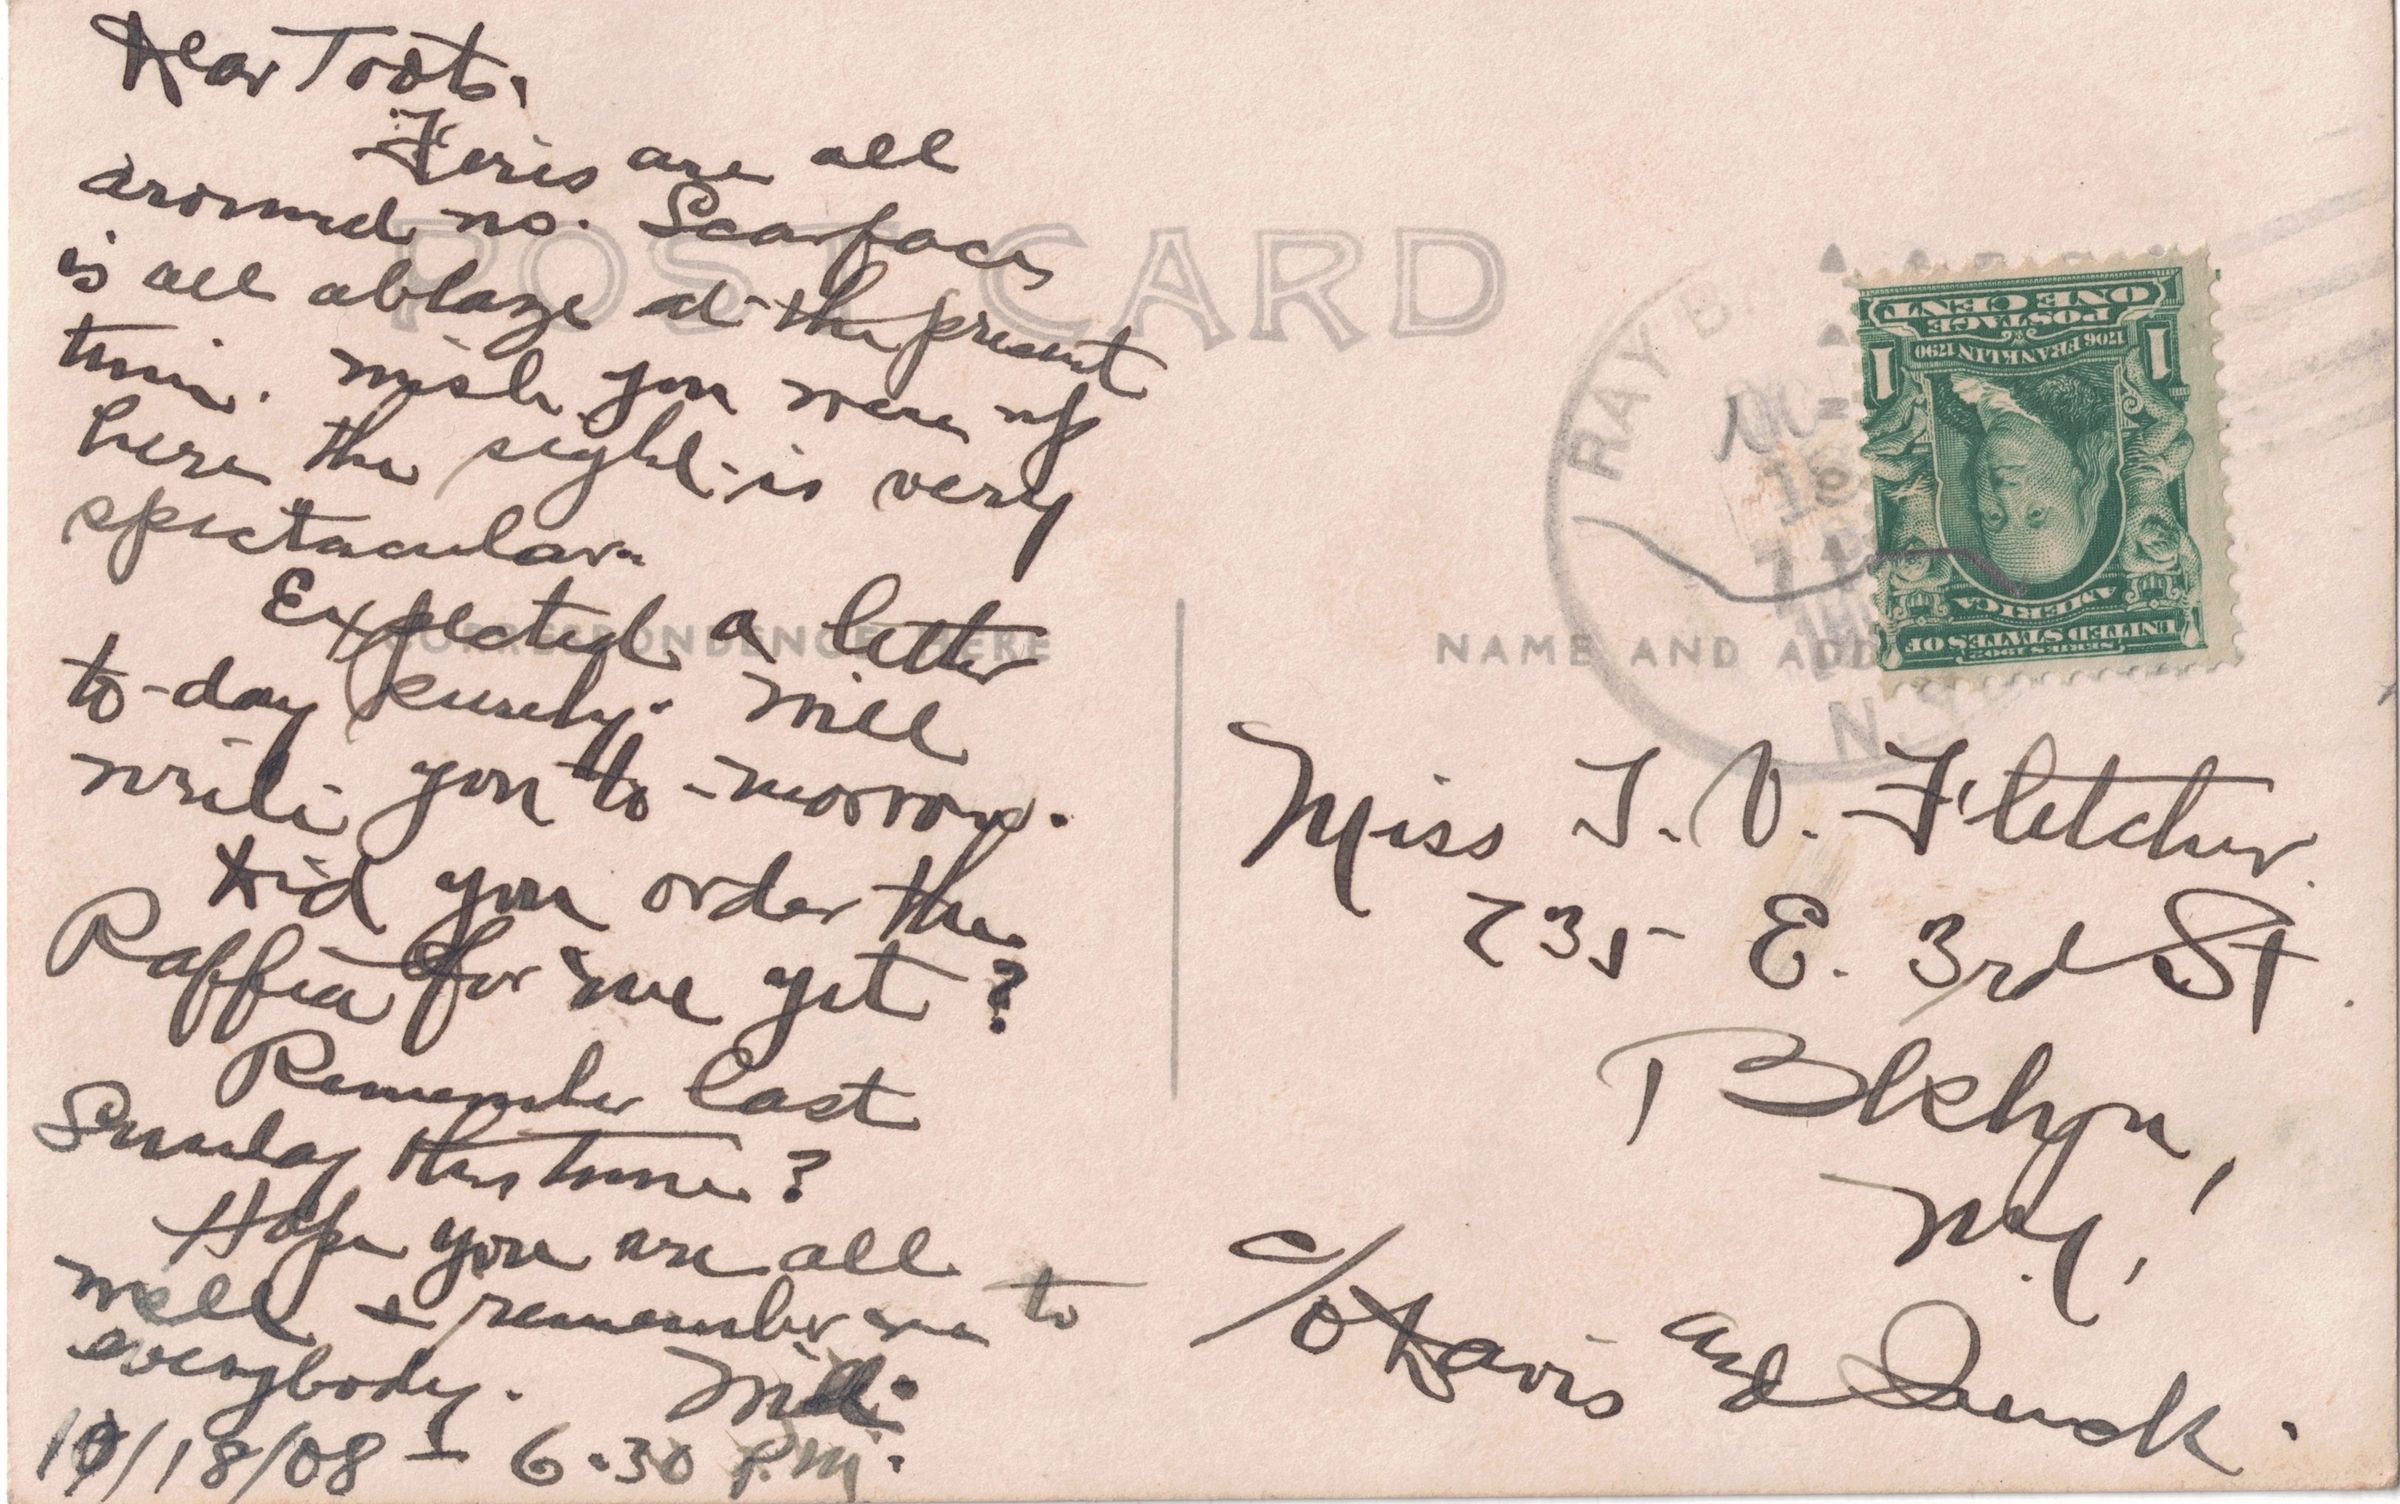 Dear Toots.
Fires are all
around us. Scarface
is all ablaze at the present
time. Wish you were up
here the sight is very
spectacular.
Expected a letter
to-day surely. Will
write you to-morrow.
Did you order the
Raffia for me yet?
Remember last
Sunday this time?
Hope you are all
well & remember me to
everybody. Will.
10/18/08 - 6.30 P.M.
POST CARD
CORRESPONDENCE HERE
NAME AND ADD
RAY B
N.Y.
ONE CENT
POSTAGE
1706 FRANKLIN 1790
1 1
UNITED STATES OF
AMERICA
SERIES 1902
Miss T. V. Fletcher.
235 E. 3rd St
Bklyn,
N.Y.
c/o Davis and